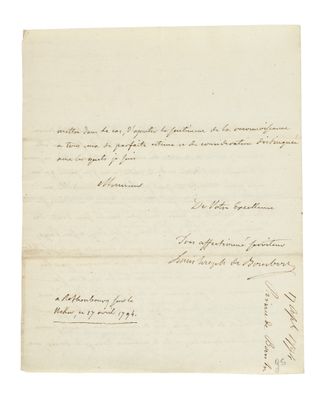 mettra dans le cas, d'ajouter le sentiment de la reconnoissance
a tous ceux de parfaite estime et de consideration distinguée
avec lesquels je suis
Monsieur
De Votre Excellence
Très affectionné serviteur
Louis Joseph de Bourbon
a Rothenbourg sur le
Neker, ce 17 avril 1794.
17 1794
Prince de
95